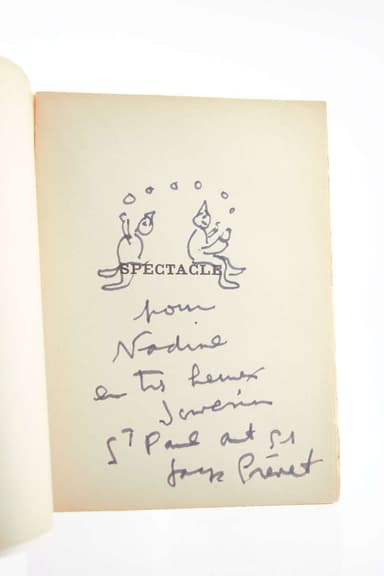 SPECTACLE
pour
Nadine
en très heureux
souvenir
St Paul août 51
Jacques Prévert